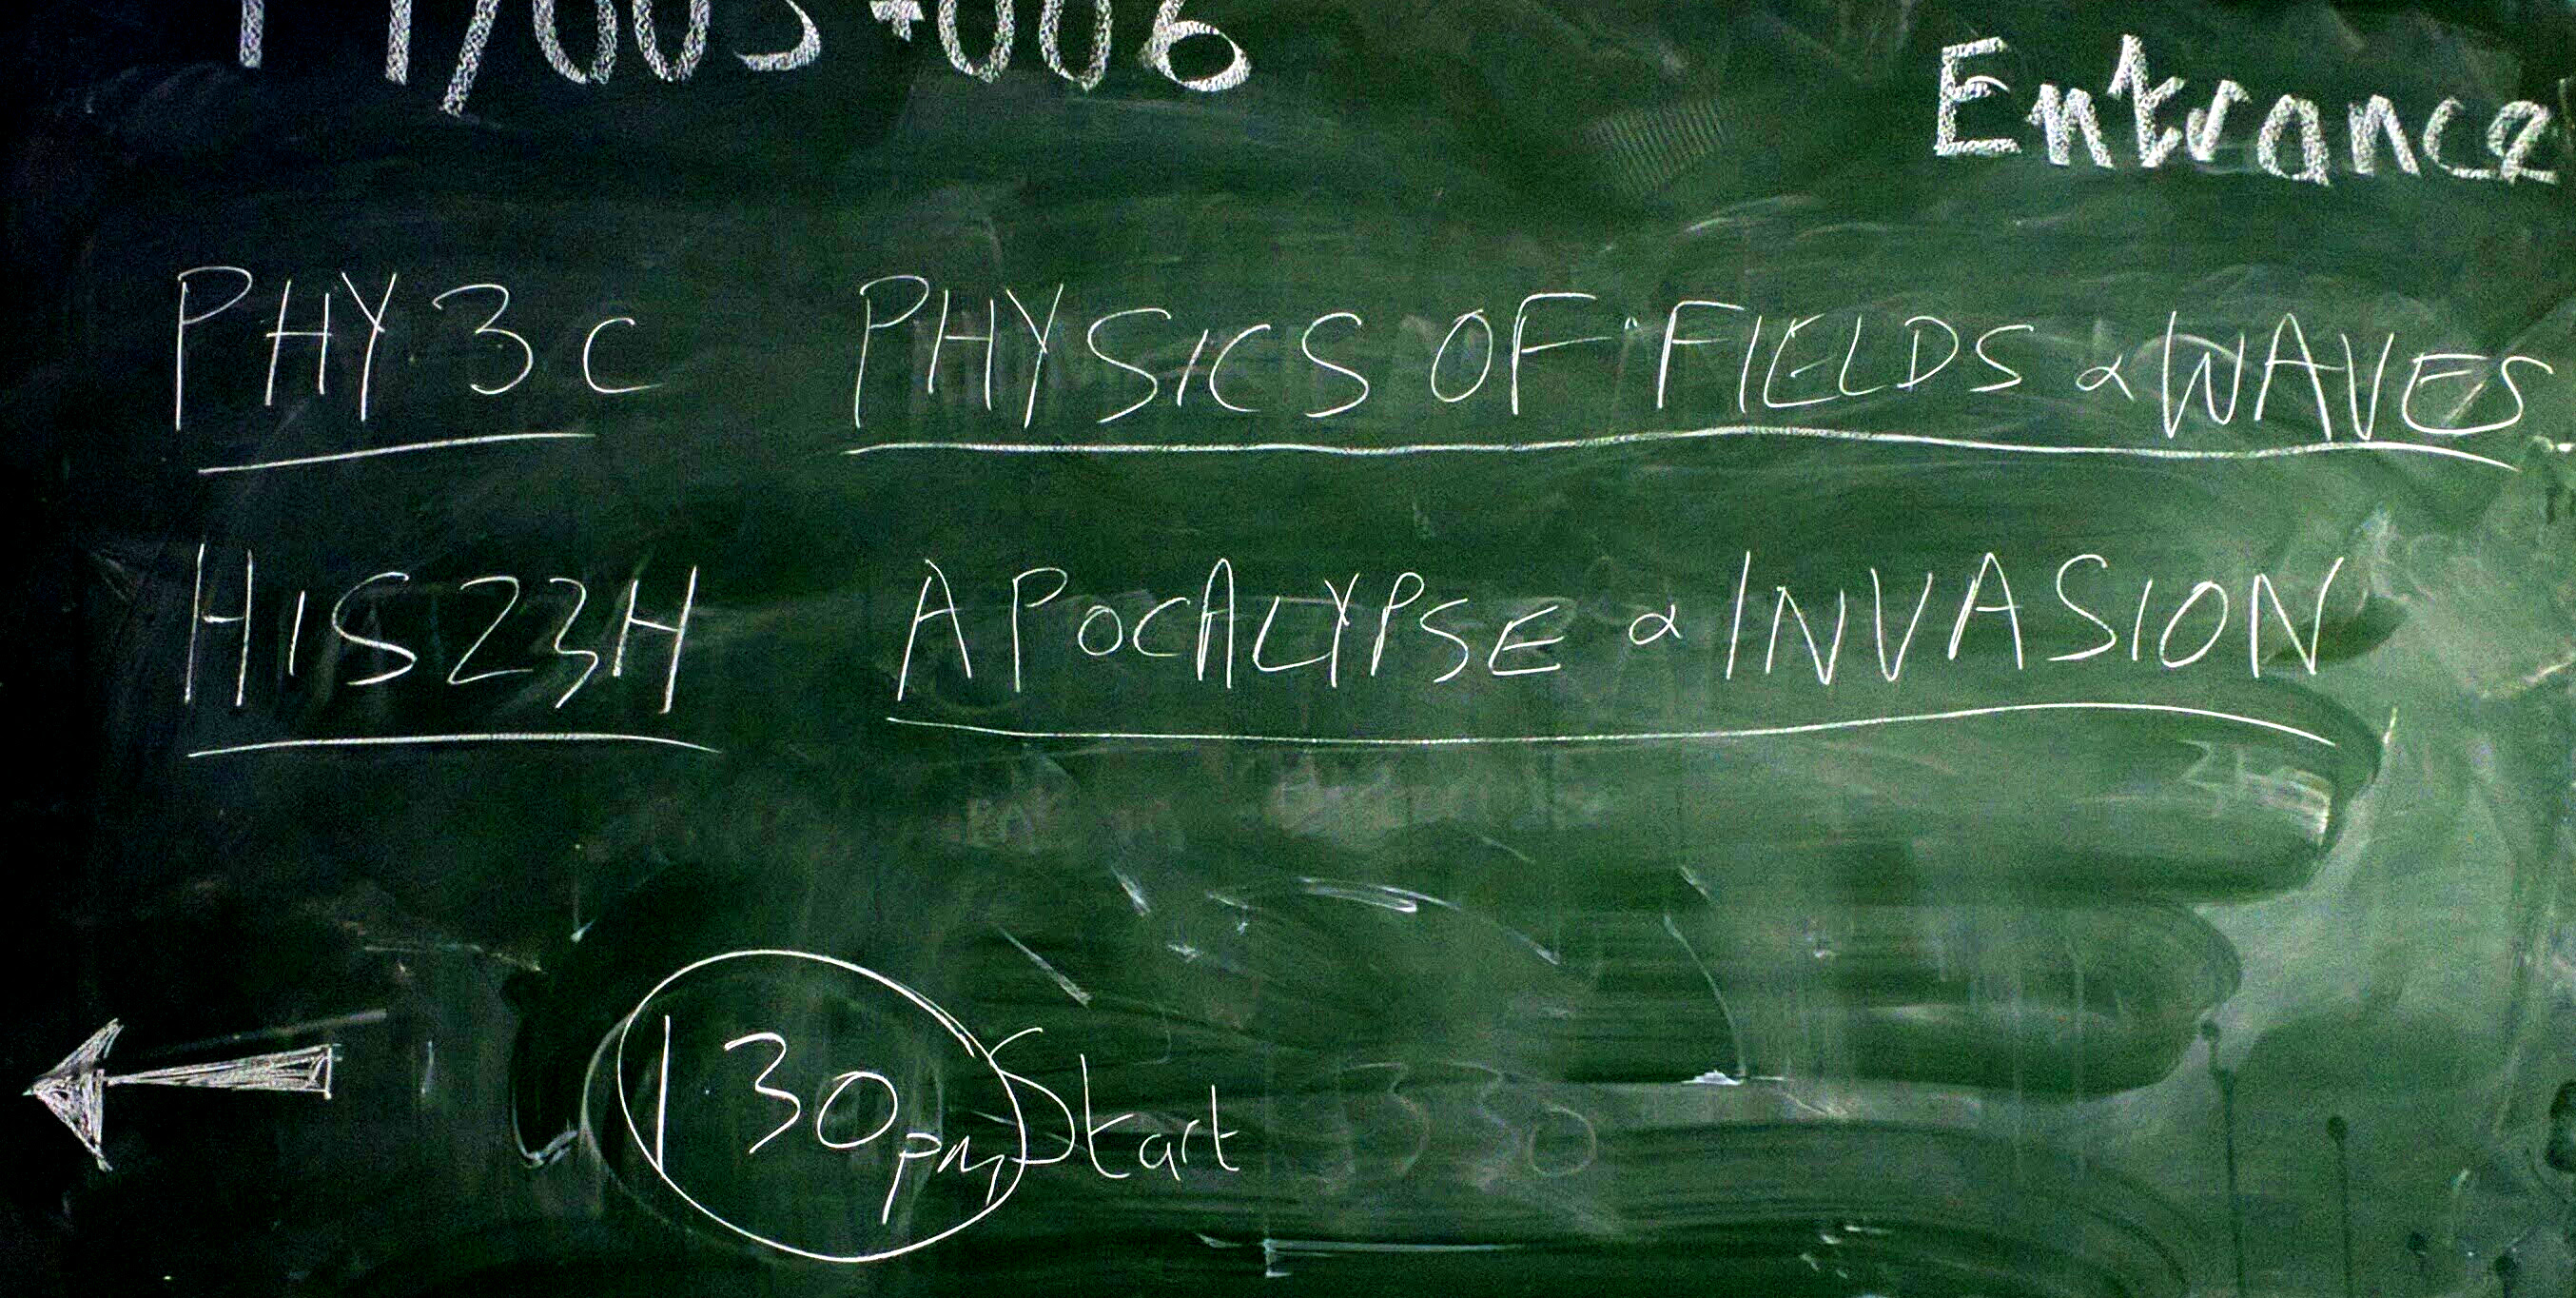 Entrance
PHY3C PHYSICS OF FIELDS & WAVES
HIS23H APOCALYPSE & INVASION
1 30pm Start